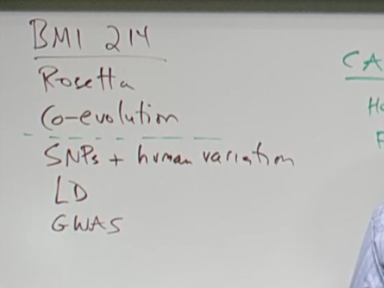 BMI 214
Rosetta
Co-evolution
SNPs + human variation
LD
GWAS
CA
Ho
F